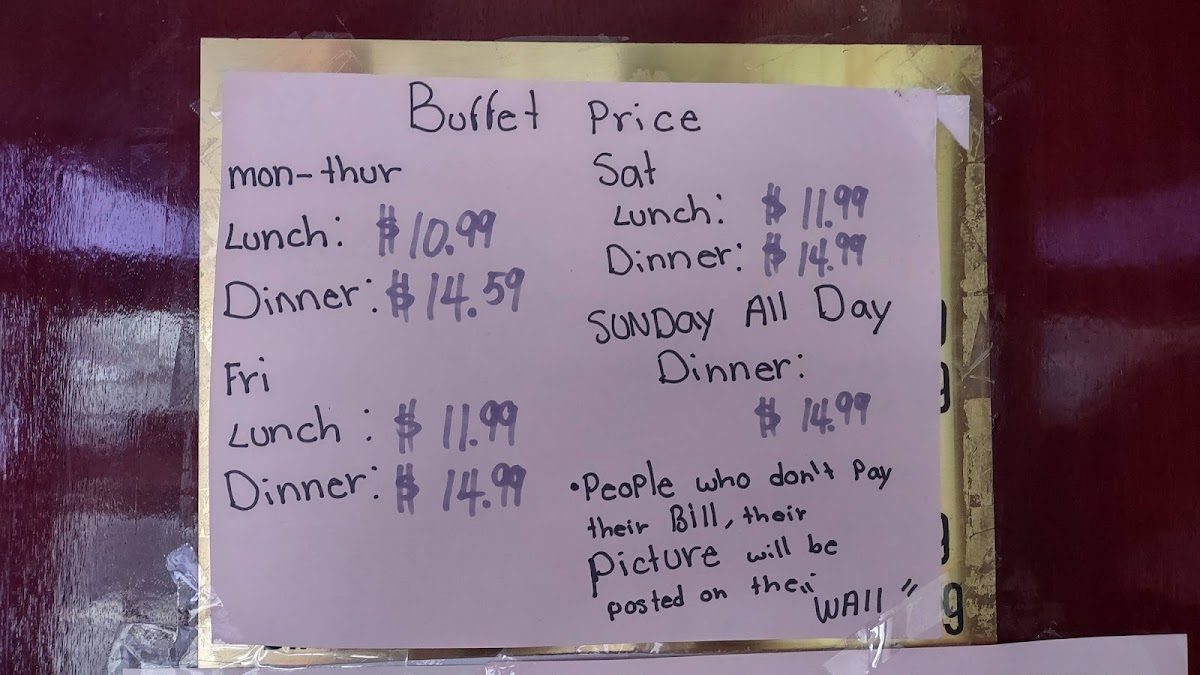 Buffet Price
mon-thur
Lunch: $10.99
Dinner: $14.59
Fri
Lunch: $11.99
Dinner: $14.99
Sat
Lunch: $11.99
Dinner: $14.99
SUNDay All Day
Dinner:
$14.99
•People who don't Pay
their Bill, their
Picture will be
posted on the "
WAll"